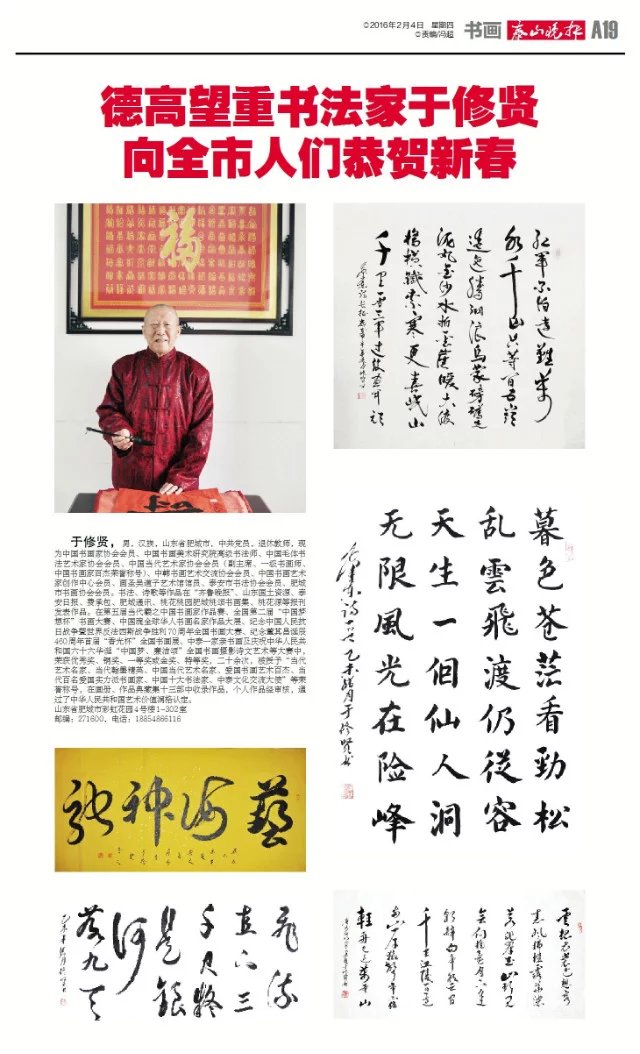 ©2016年2月4日 星期四
©责编/冯超
书画 泰山晚报 A19
德高望重书法家于修贤
向全市人们恭贺新春
福
红军不怕远征难万
水千山只等闲五岭
逶迤腾细浪乌蒙磅礴走
泥丸金沙水拍云崖暖大渡
桥横铁索寒更喜岷山
千里雪三军过后尽开颜
于修贤，男，汉族，山东省肥城市，中共党员，退休教师，现
为中国书画家协会会员、中国书画美术研究院高级书法师、中国毛体书
法艺术家协会会员、中国当代艺术家协会会员（副主席、一级书画师、
中国书画家百杰荣誉称号）、中韩书画艺术交流协会会员、中国书画艺术家
创作中心会员、画圣吴道子艺术馆馆员、泰安市书法协会会员、肥城
市书画协会会员。书法、诗歌等作品在“齐鲁晚报”、山东国土资源、泰
安日报、费承包、肥城通讯、桃花桃园肥城桃颂书画集、桃花源等报刊
发表作品。在第五届当代羲之中国书画家作品赛、全国第二届“中国梦
想杯”书画大赛、中国魂全球华人书画名家作品大展、纪念中国人民抗
日战争暨世界反法西斯战争胜利70周年全国书画大赛、纪念董其昌诞辰
460周年首届“香光杯”全国书画展、中泰一家亲书画及庆祝中华人民共
和国六十六华诞“中国梦、廉洁颂”全国书画摄影诗文艺术等大赛中，
荣获优秀奖、铜奖、一等奖或金奖、特等奖，二十余次，被授予“当代
艺术名家、当代翰墨精英、中国当代艺术名家、爱国书画艺术百杰、当
代百名爱国实力派书画家、中国十大书法家、中泰文化交流大使”等荣
誉称号，在画册、作品典藏第十三部中收录作品，个人作品经审核，通
过了中华人民共和国艺术价值润格认定。
山东省肥城市彩虹花园4号楼1-302室
邮编：271600，电话：18854866116
暮色苍茫看劲松
乱雲飛渡仍從容
天生一個仙人洞
无限風光在险峰
藝海神
飛流
直下三
千尺疑
是銀
河
落九天